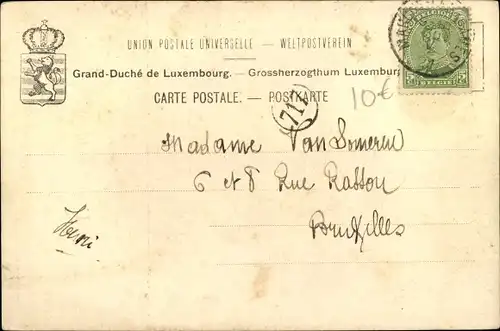 UNION POSTALE UNIVERSELLE — WELTPOSTVEREIN
Grand-Duché de Luxembourg. — Grossherzogthum Luxemburg
CARTE POSTALE. — POSTKARTE
10€
711
Madame Van Someren
6 et 8 Rue Rasson
Bruxelles
Henri